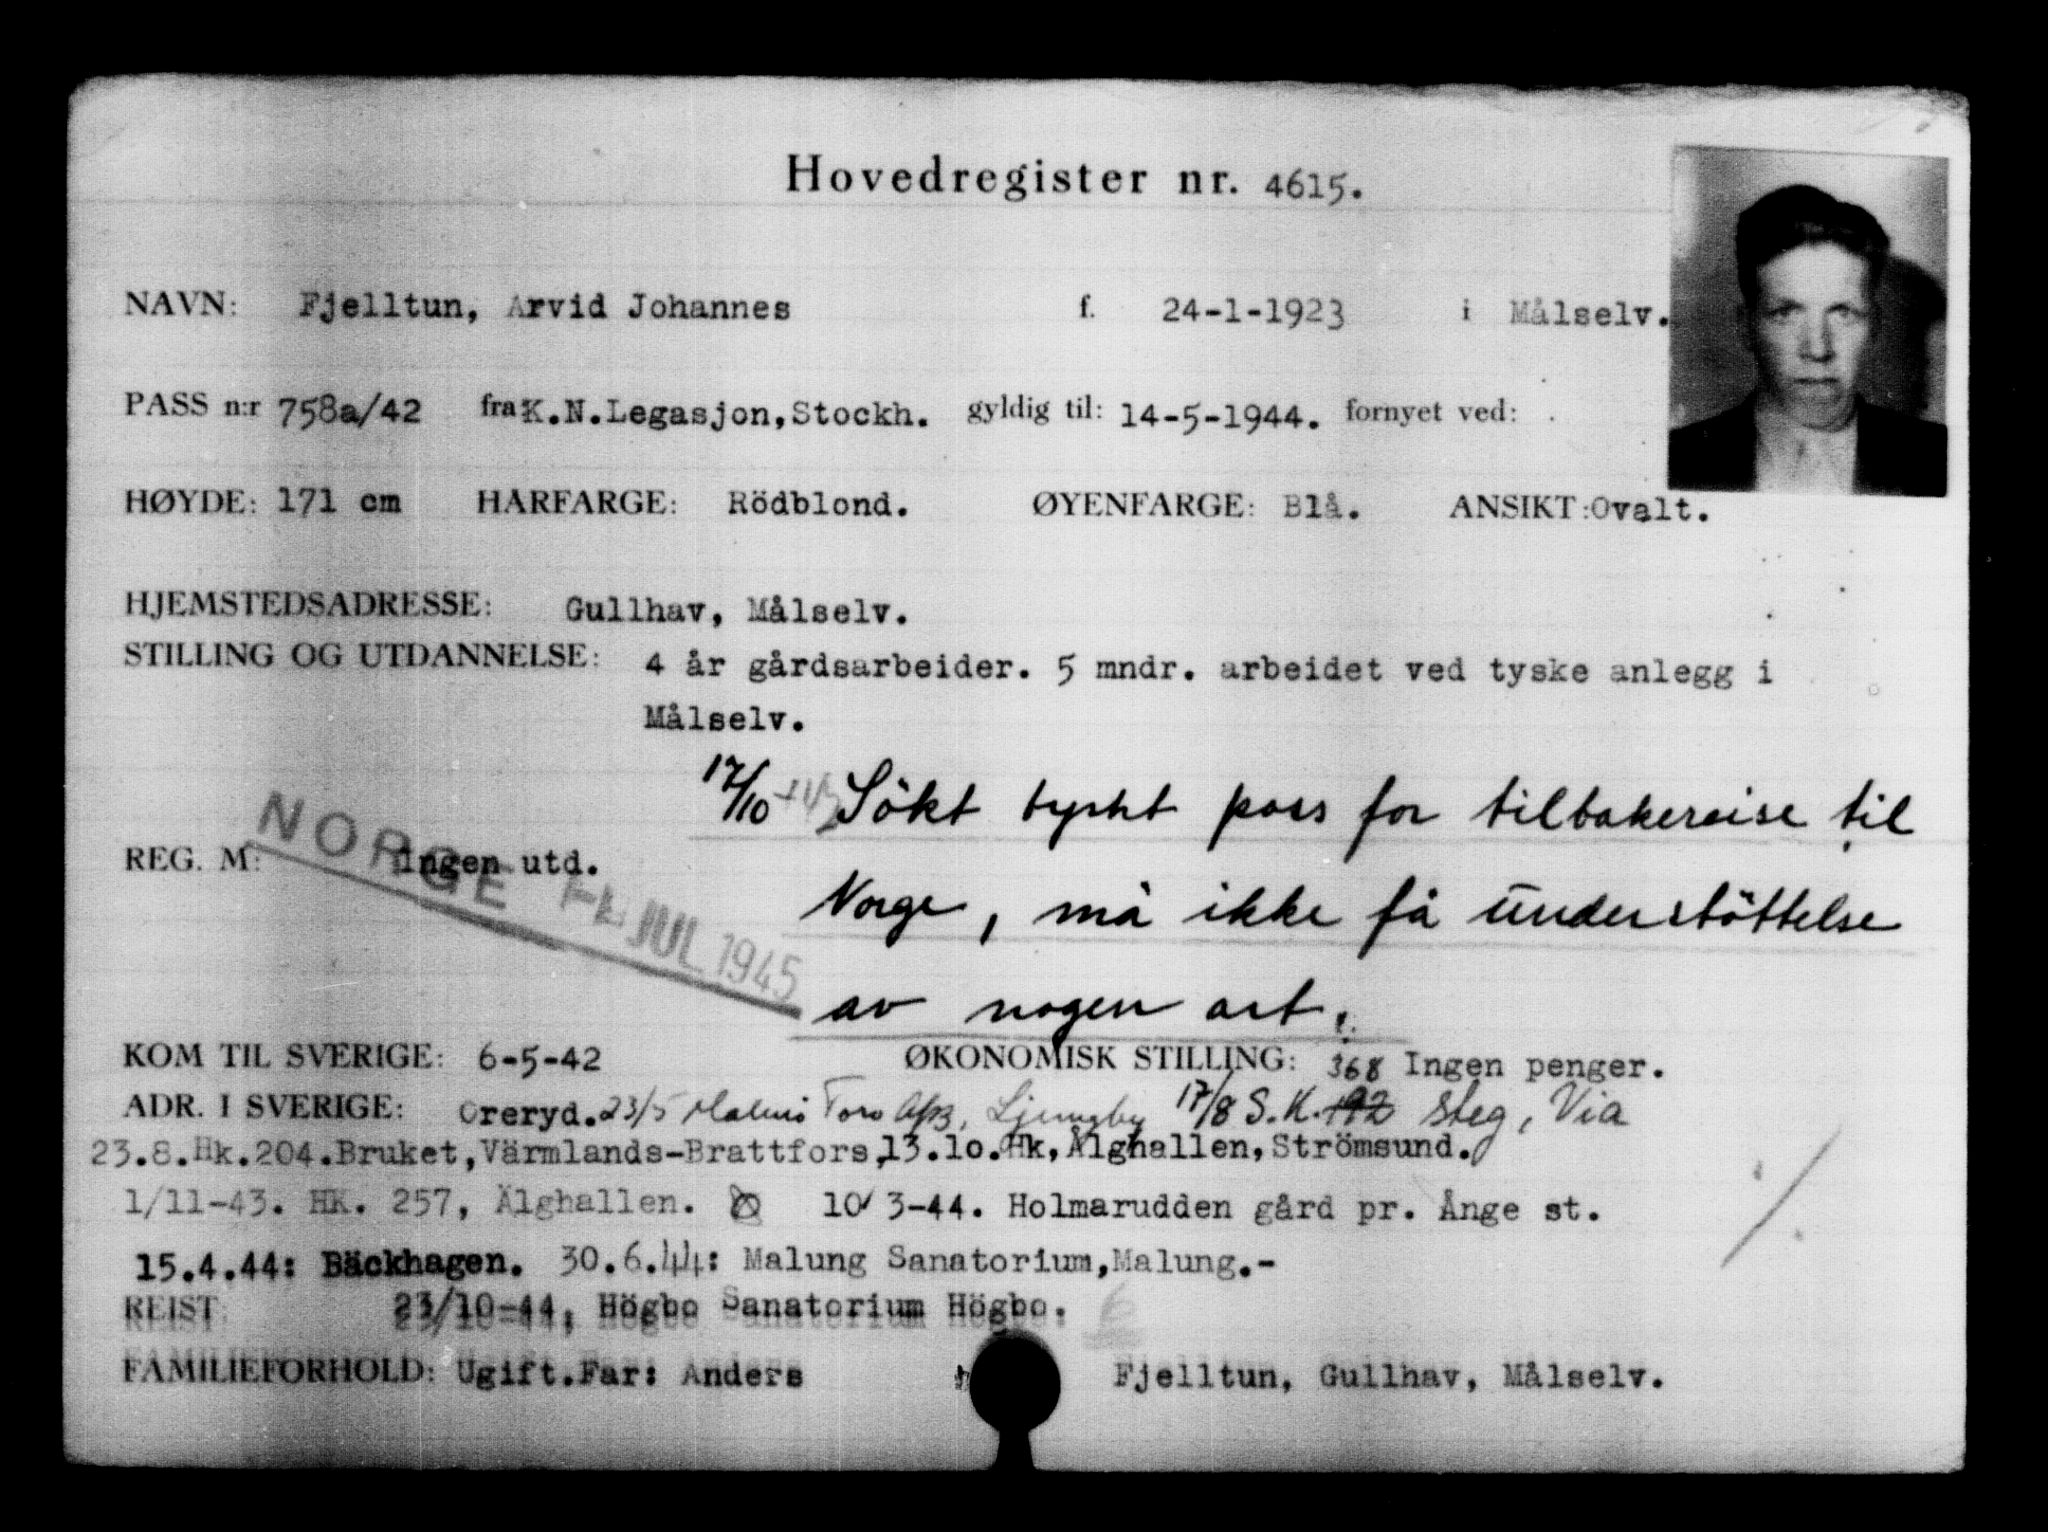 Hovedregister nr. 4615.
NAVN: Fjelltun, Arvid Johannes f. 24-1-1923 i Målselv.
PASS n:r 758a/42 fra K.N.Legasjon,Stockh. gyldig til: 14-5-1944. fornyet ved:
HØYDE: 171 cm HÅRFARGE: Rödblond. ØYENFARGE: Blå. ANSIKT: Ovalt.
HJEMSTEDSADRESSE: Gullhav, Målselv.
STILLING OG UTDANNELSE: 4 år gårdsarbeider. 5 mndr. arbeidet ved tyske anlegg i
Målselv.
17/10 Søkt tyskt pass for tilbakereise til
REG. M: Ingen utd.
NORGE JUL 1945
Norge, må ikke få understöttelse
av nogen art.
KOM TIL SVERIGE: 6-5-42 ØKONOMISK STILLING: 368 Ingen penger.
ADR. I SVERIGE: Öreryd. 23/5 Ljungby 17/8 S.K. 192 Steg, Via
23.8.Hk.204.Bruket,Värmlands-Brattfors,13.10.Hk,Älghallen,Strömsund.
1/11-43. HK. 257, Älghallen. 10/3-44. Holmarudden gård pr. Ånge st.
15.4.44: Bäckhagen. 30.6.44: Malung Sanatorium,Malung.-
REIST: 23/10-44, Högbo Sanatorium Högbo.
FAMILIEFORHOLD: Ugift.Far: Anders Fjelltun, Gullhav, Målselv.